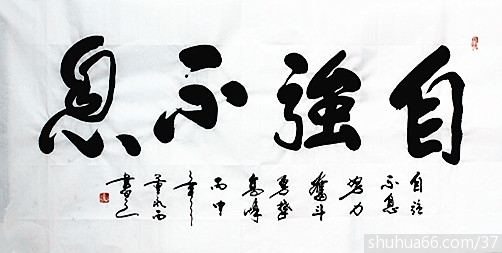 自強不息
自強
不息
努力
奮斗
勇攀
高峰
丙申
年
書之
shuhua66.com/37